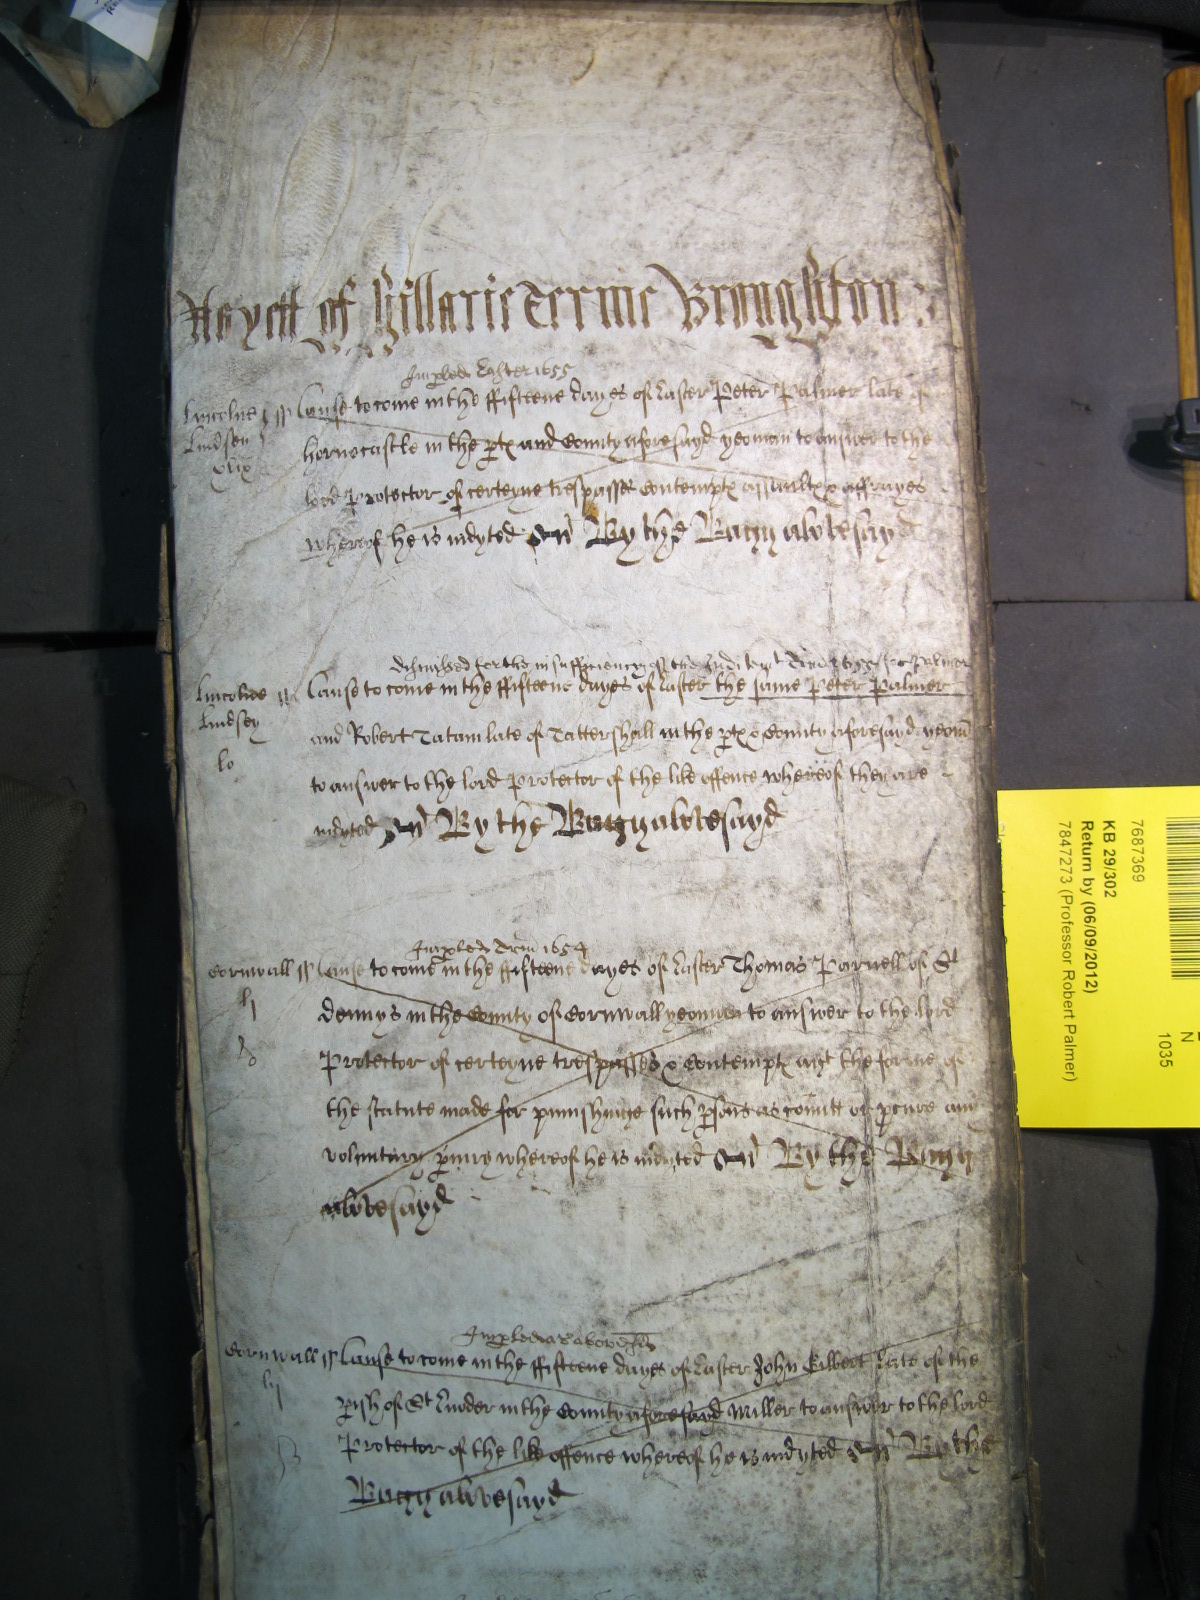 As yett of Hillarie Terme Broughton
Impled Easter 1655
Lincolne ss Cause to come in the fifteene dayes of Easter Peter Palmer late of
Lindsey
hornecastle in the pts and County aforesayd yeoman to answer to the
xlix
lord Protector of certeyne trespasses Contempts assaults & affrayes
whereof he is indyted By the Bagg abovesayd
dismissed for the insufficiency of the Inditemt Trin 1655 for Palmer
Lincolne ss Cause to come in the fifteene dayes of Easter the same Peter Palmer
Lindsey
and Robert Tatam late of Tattershall in the pts & County aforesayd yeom
lo
to answer to the lord Protector of the like offence whereof they are
indyted By the Bagg abovesayd
Impled Trin 1654
Cornwall ss Cause to come in the fifteene dayes of Easter Thomas Parnell of St
li
dennys in the County of Cornwall yeoman to answer to the lord
Protector of certeyne trespasses & Contempts agt the forme of
the statute made for punishinge such psons as comitt or pcure any
voluntary piury whereof he is indyted By the Bagg
abovesayd
Impled as above
Cornwall ss Cause to come in the fifteene dayes of Easter John Gilbert late of the
pish of St Tudder in the County aforesayd Miller to answer to the lord
Protector of the like offence whereof he is indyted By the
Bagg abovesayd
7687369
KB 29/302
Return by (06/09/2012)
7847273 (Professor Robert Palmer)
N
1035